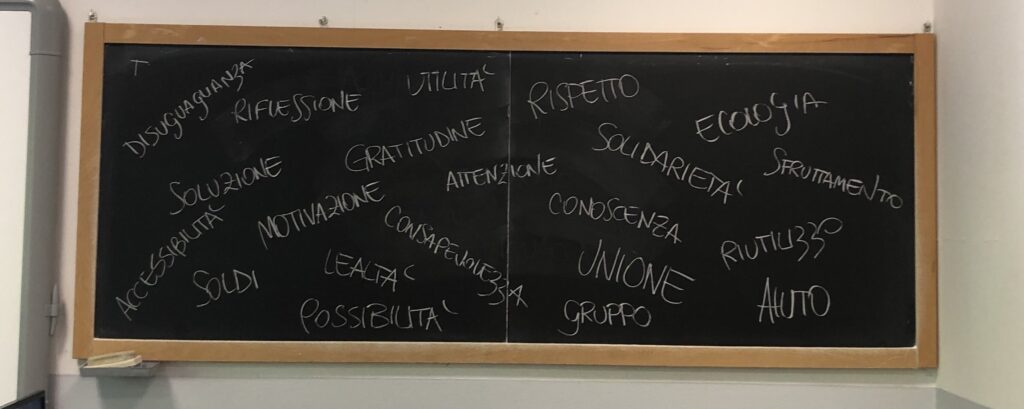 T
DISUGUAGLIANZA
RIFLESSIONE
UTILITA'
RISPETTO
ECOLOGIA
GRATITUDINE
SOLIDARIETA'
SFRUTTAMENTO
SOLUZIONE
ATTENZIONE
MOTIVAZIONE
CONOSCENZA
ACCESSIBILITA'
CONSAPEVOLEZZA
RIUTILIZZO
SOLDI
LEALTA'
UNIONE
POSSIBILITA'
GRUPPO
AIUTO